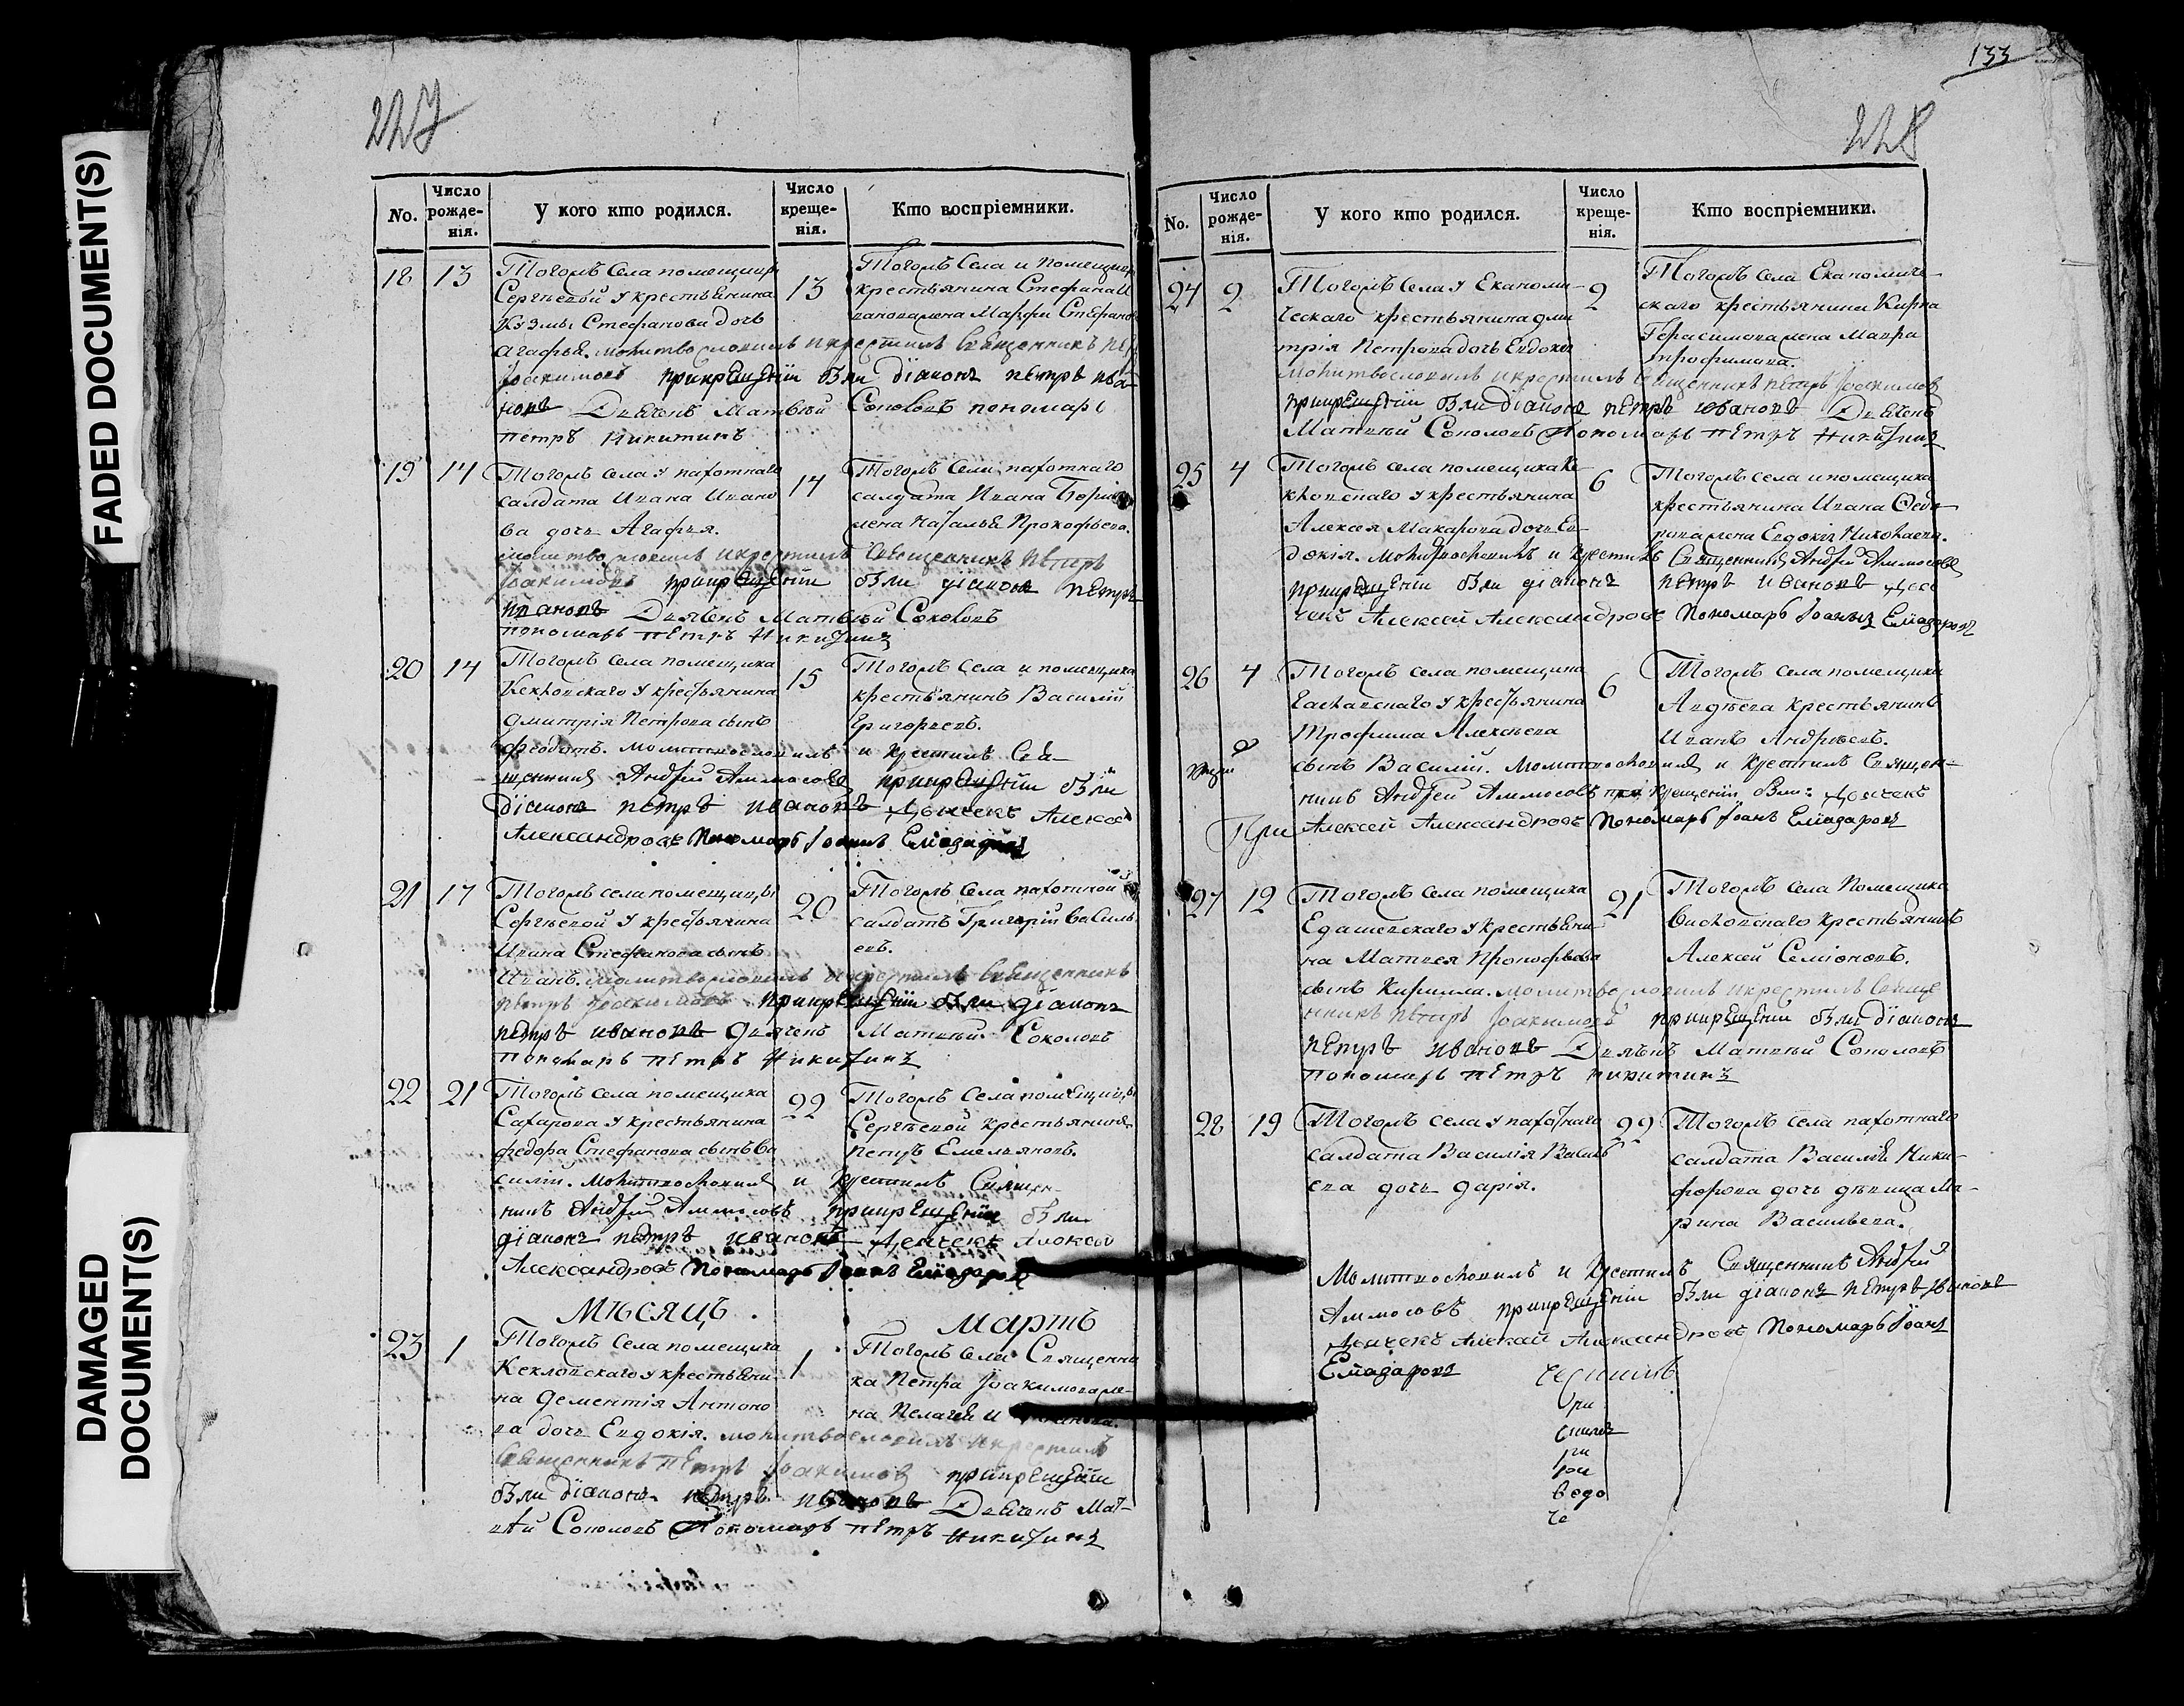 FADED DOCUMENT(S)
DAMAGED
DOCUMENT(S)
227
No.
Число рожде-нія.
У кого кто родился.
Число креще-нія.
Кто воспріемники.
18 13 13
Тогожъ Села помещицы
Сергѣевой у крестьянина
Кузмы Стефанова дочь
Агафья. молитвословилъ и крестилъ Священникъ
Іоакимовъ при крещеніи были діаконъ петръ ива-
новъ Дьячекъ Матвѣй Соколовъ пономарь
петръ Никитинъ
Тогожъ Села и помещицы
крестьянина Стефана
жена Марфа Стефанов
19 14 14
Тогожъ села у пахотнаго
салдата Ивана Ивано
ва дочь Агафья.
молитвословилъ и крестилъ Священникъ петръ
Іоакимовъ при крещеніи были діаконъ петръ
ивановъ Дьячекъ Матвѣй Соколовъ
пономарь петръ Никитинъ
Тогожъ Села пахотнаго
салдата Ивана
жена Наталья Прокофьева.
20 14 15
Тогожъ села помещика
Кекловскаго у крестьянина
Дмитрія Петрова сынъ
Феодотъ. молитвословилъ и крестилъ Свя-
щенникъ Андрей Аммосовъ при крещеніи были
діаконъ петръ ивановъ Дьячекъ Алексей
Александровъ Пономарь Іоаннъ Еліазаровъ
Тогожъ Села и помещика
крестьянинъ Василій
Григорьевъ.
21 17 20
Тогожъ села помещицы
Сергѣевой у крестьянина
Ивана Стефанова сынъ
Иванъ. молитвословилъ и крестилъ Священникъ
петръ Іоакимовъ при крещеніи были діаконъ
петръ ивановъ Дьячекъ Матвей Соколовъ
пономарь петръ Никитинъ
Тогожъ Села пахотной
салдатъ Григорій Василь
евъ.
22 21 22
Тогожъ села помещика
Сахарова у крестьянина
Федора Стефанова сынъ Ва
силій. молитвословилъ и крестилъ Священ-
никъ Андрей Аммосовъ при крещеніи были
діаконъ петръ ивановъ Дьячекъ Алексей
Александровъ Пономарь Іоаннъ Еліазаровъ
Тогожъ Села помещицы
Сергѣевой крестьянинъ
Петръ Емельяновъ.
Мѣсяцъ. Мартъ
23 1 1
Тогожъ Села помещика
Кекловскаго у крестьяни-
на Дементія Антоно
ва дочь Евдокія. молитвословилъ и крестилъ
Священникъ петръ Іоакимовъ при крещеніи
были діаконъ петръ ивановъ Дьячекъ Мат-
вѣй Соколовъ Пономарь петръ Никитинъ
Тогожъ Села Священни
ка Петра Іоакимова же-
на Пелагея
133
228
No.
Число рожде-нія.
У кого кто родился.
Число креще-нія.
Кто воспріемники.
24 2 2
Тогожъ Села у Економи-
ческаго крестьянина Дми
трія Петрова дочь Евдокія
молитвословилъ и крестилъ Священникъ петръ Іоакимовъ
при крещеніи были діаконъ петръ ивановъ Дьячекъ
Матвей Соколовъ Пономарь петръ Никитинъ
Тогожъ села Економиче-
скаго крестьянина Кирпа
Герасимова жена Мавра
трофимова.
25 4 6
Тогожъ села помещика Ке
кловскаго у крестьянина
Алексея Макарова дочь Ев-
докія. молитвословилъ и крестилъ Священникъ Андрей Аммосовъ
при крещеніи были діаконъ петръ ивановъ Дья
чекъ Алексей Александровъ Пономарь Іоаннъ Еліазаровъ
Тогожъ села и помещика
крестьянина Ивана Федо
рова жена Евдокія Николаева.
26 4 6
Тогожъ села помещика
у крестьянина
Трофима Алексеева
сынъ Василій. молитвословилъ и крестилъ Священ-
никъ Андрей Аммосовъ при крещеніи были: Дьячекъ
При Алексей Александровъ Пономарь Іоанъ Еліазаровъ
Тогожъ села помещика
Авдѣева крестьянинъ
Иванъ Андрѣевъ.
27 12 21
Тогожъ села помещика
Едашевскаго у крестьяни-
на Матвея Прокофьева
сынъ Кирилла. молитвословилъ и крестилъ Свяще
нникъ петръ Іоакимовъ при крещеніи были діаконъ
петръ ивановъ Дьячекъ Матвей Соколовъ
пономарь петръ никитинъ
Тогожъ Села Помещика
крестьянинъ
Алексей Семіоновъ.
28 19 22
Тогожъ села у пахотнаго
салдата Василія Василь
ева дочь Дарія.
Тогожъ села пахотнаго
салдата Василья Ники-
форова дочь девица Ма-
рина Васильева.
Молитвословилъ и крестилъ Священникъ Андрей
Аммосовъ при крещеніи были діаконъ петръ ивановъ
Дьячекъ Алексей Александровъ Пономарь Іоанъ
Еліазаровъ